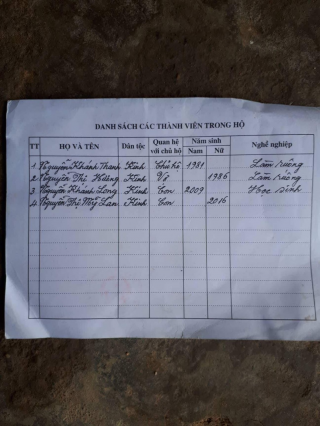 DANH SÁCH CÁC THÀNH VIÊN TRONG HỘ
TT HỌ VÀ TÊN Dân tộc Quan hệ với chủ hộ Năm sinh Nam Nữ Nghề nghiệp
1 Nguyễn Khánh Thanh Kinh Chủ hộ 1981 Làm ruộng
2 Nguyễn Thị Hương Kinh Vợ 1986 Làm ruộng
3 Nguyễn Khánh Long Kinh Con 2009 Học sinh
4 Nguyễn Thị Mỹ Lan Kinh Con 2016